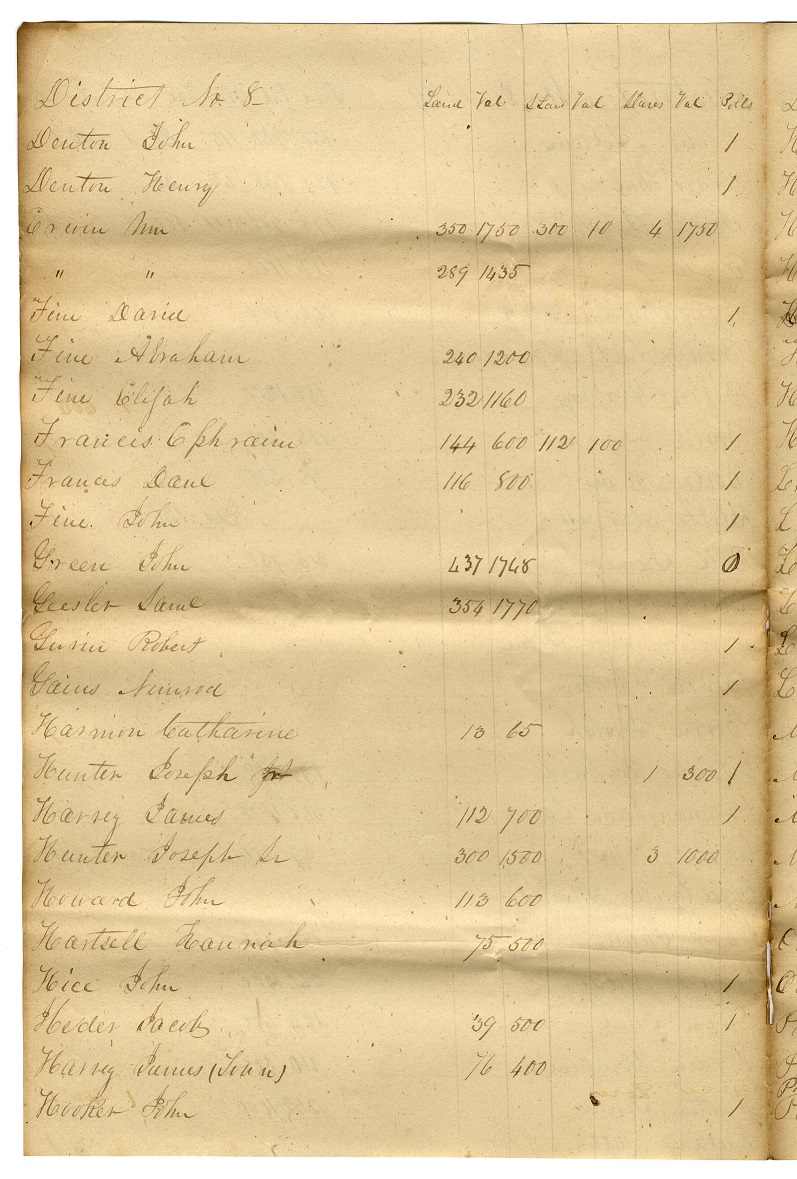 District No. 8 Land Val SLan Val Slaves Val Polls
Denton John 1
Denton Henry 1
Erwin Wm 350 1750 300 10 4 1750
" " 289 1435
Fine David 1
Fine Abraham 240 1200
Fine Elijah 232 1160
Francis Ephraim 144 600 112 100 1
Frances Danl 116 800 1
Fine John 1
Green John 437 1748 0
Geesler Saml 354 1770
Robert 1
Gains Nimrod 1
Harmon Catharine 13 65
Hunter Joseph Jr 1 300 1
Harvey James 112 700 1
Hunter Joseph Sr 300 1500 3 1000
Howard John 113 600
Hartsell Hannah 75 500
Hice John 1
Heder Jacob 39 500 1
Harvey James (Town) 76 400
Hooker John 1